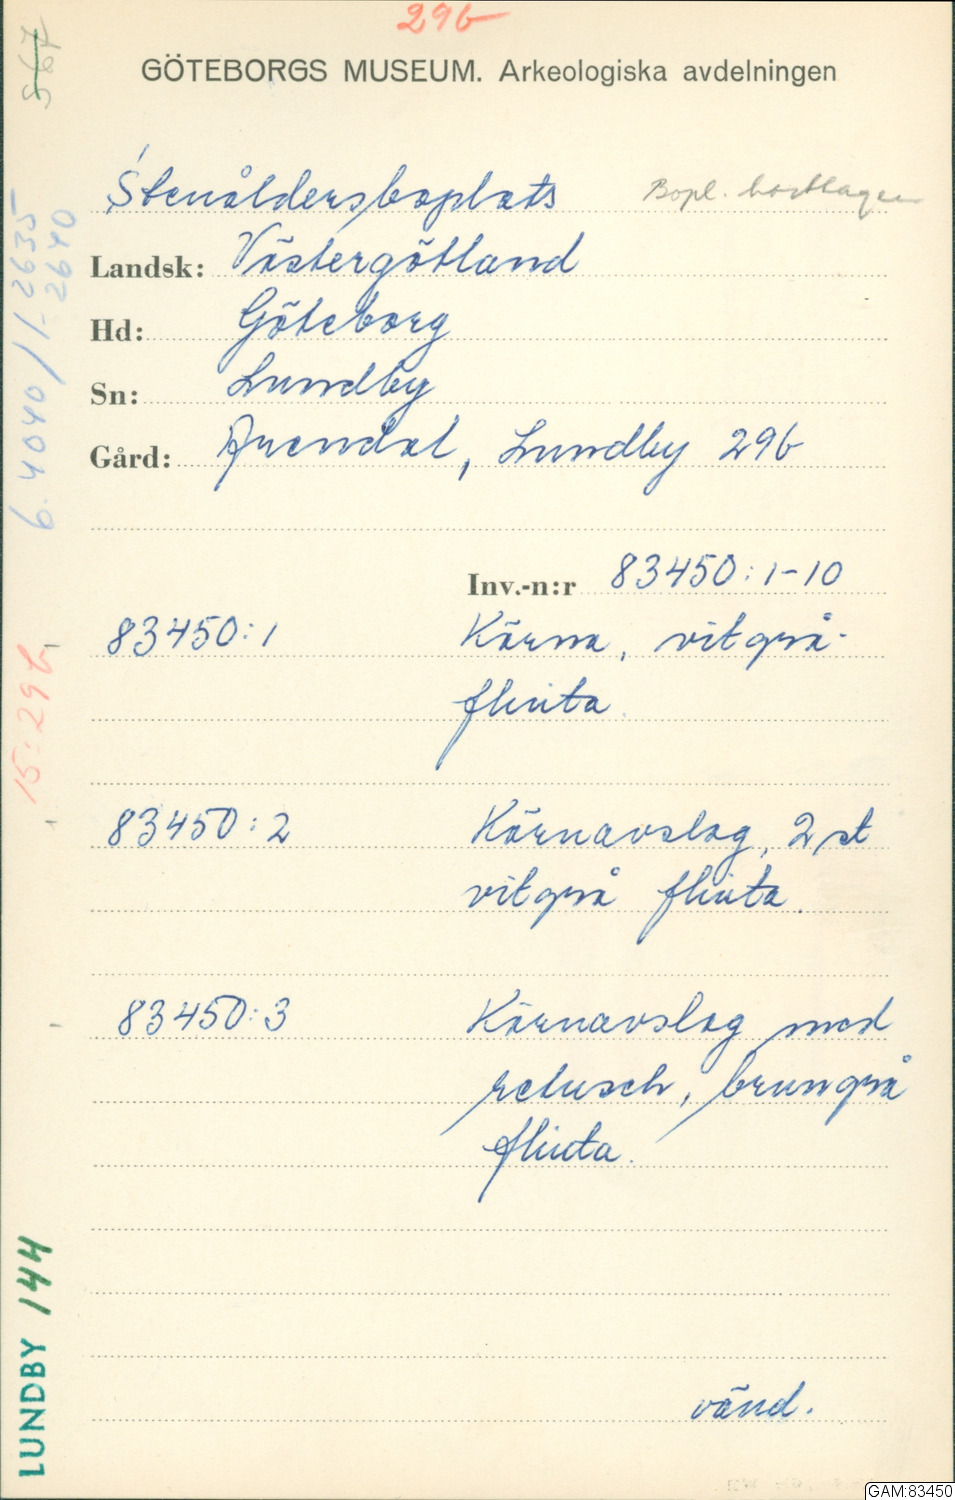 29b
567
GÖTEBORGS MUSEUM. Arkeologiska avdelningen
Stenåldersboplats
Bopl. borttagen
Landsk: Västergötland
Hd: Göteborg
Sn: Lundby
Gård: Arendal, Lundby 29b
6.4040/1-2635
-2640
Inv.-n:r 83450:1-10
83450:1 Kärna, vitgrå
flinta.
15:29b
83450:2 Kärnavslag, 2 st
vitgrå flinta.
83450:3 Kärnavslag med
retusch, brungrå
flinta.
LUNDBY 144
vänd.
GAM:83450